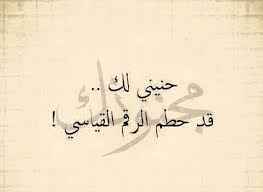 حنيني لك ..
قد حطم الرقم القياسي !